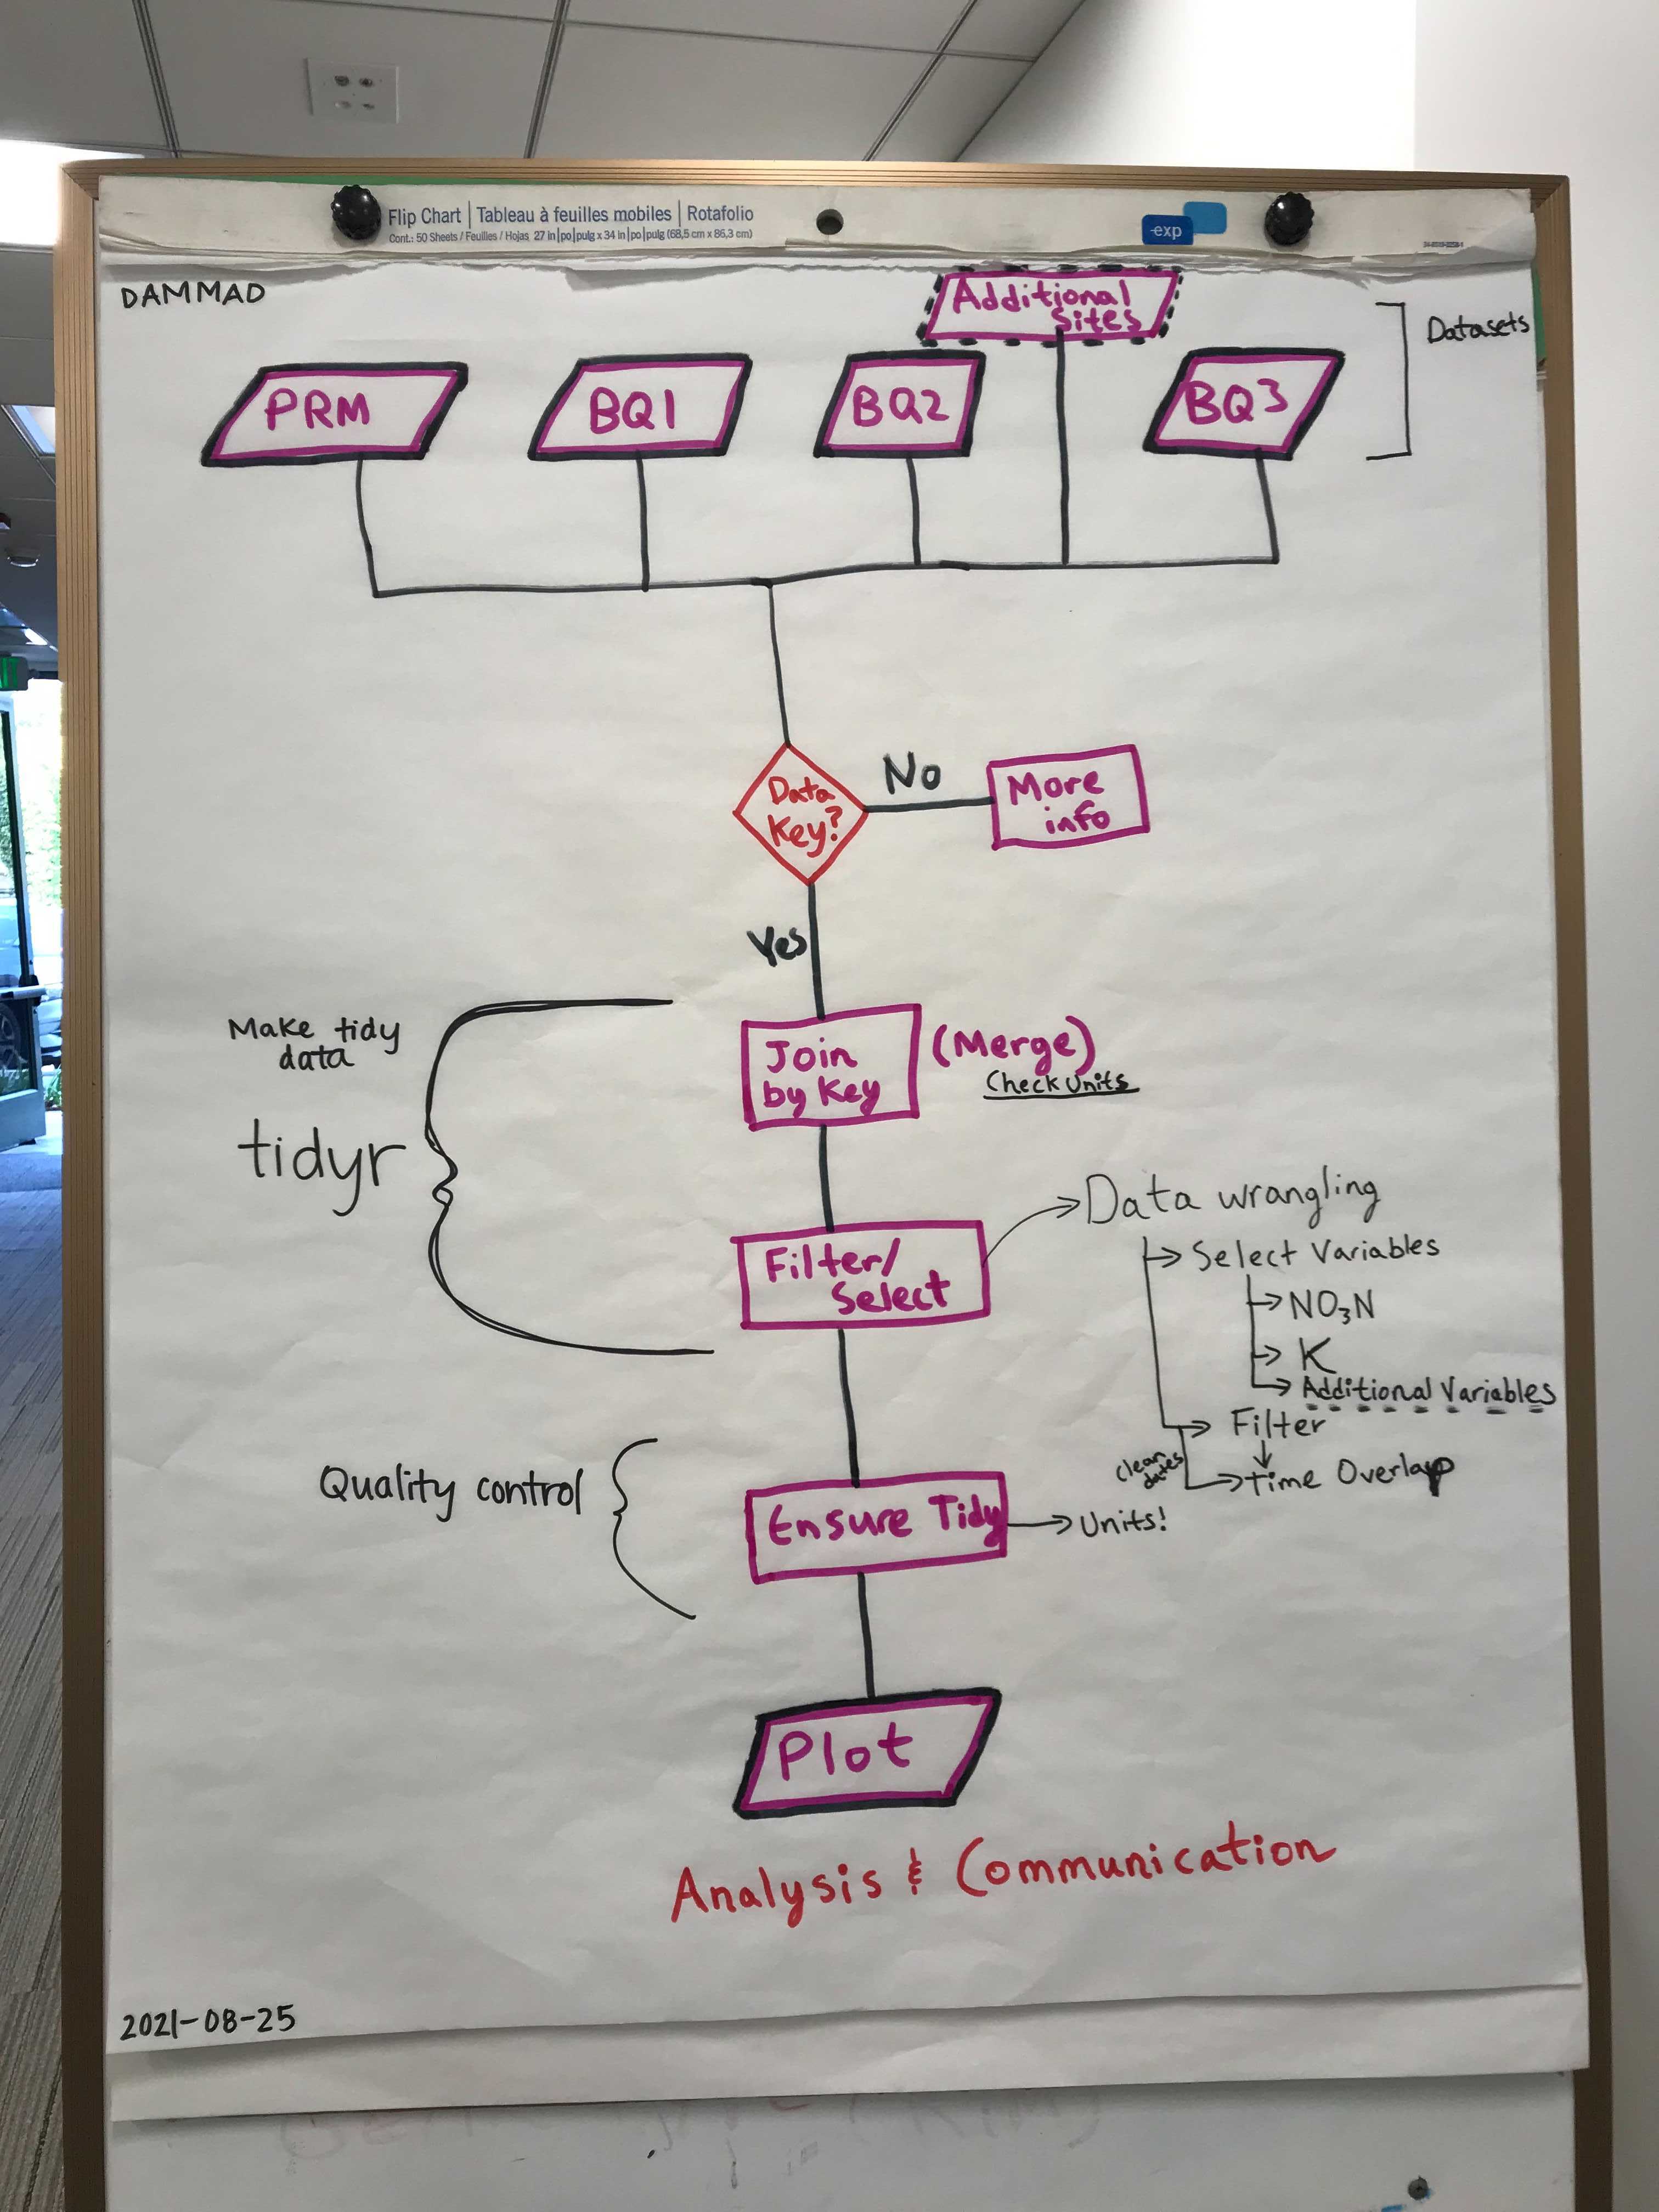 Flip Chart | Tableau à feuilles mobiles | Rotafolio
Cont.: 50 Sheets / Feuilles / Hojas 27 in|po|pulg x 34 in|po|pulg (68,5 cm x 86,3 cm)
-exp
DAMMAD
Additional
Sites
Datasets
PRM
BQ1
BQ2
BQ3
Data
Key?
No
More
info
Yes
Make tidy
data
tidyr
Join
by Key
(Merge)
Check Units
Filter/
Select
Data wrangling
Select Variables
NO₃N
K
Additional Variables
Filter
clean
dates
time Overlap
Quality control
Ensure Tidy
Units!
Plot
Analysis & Communication
2021-08-25